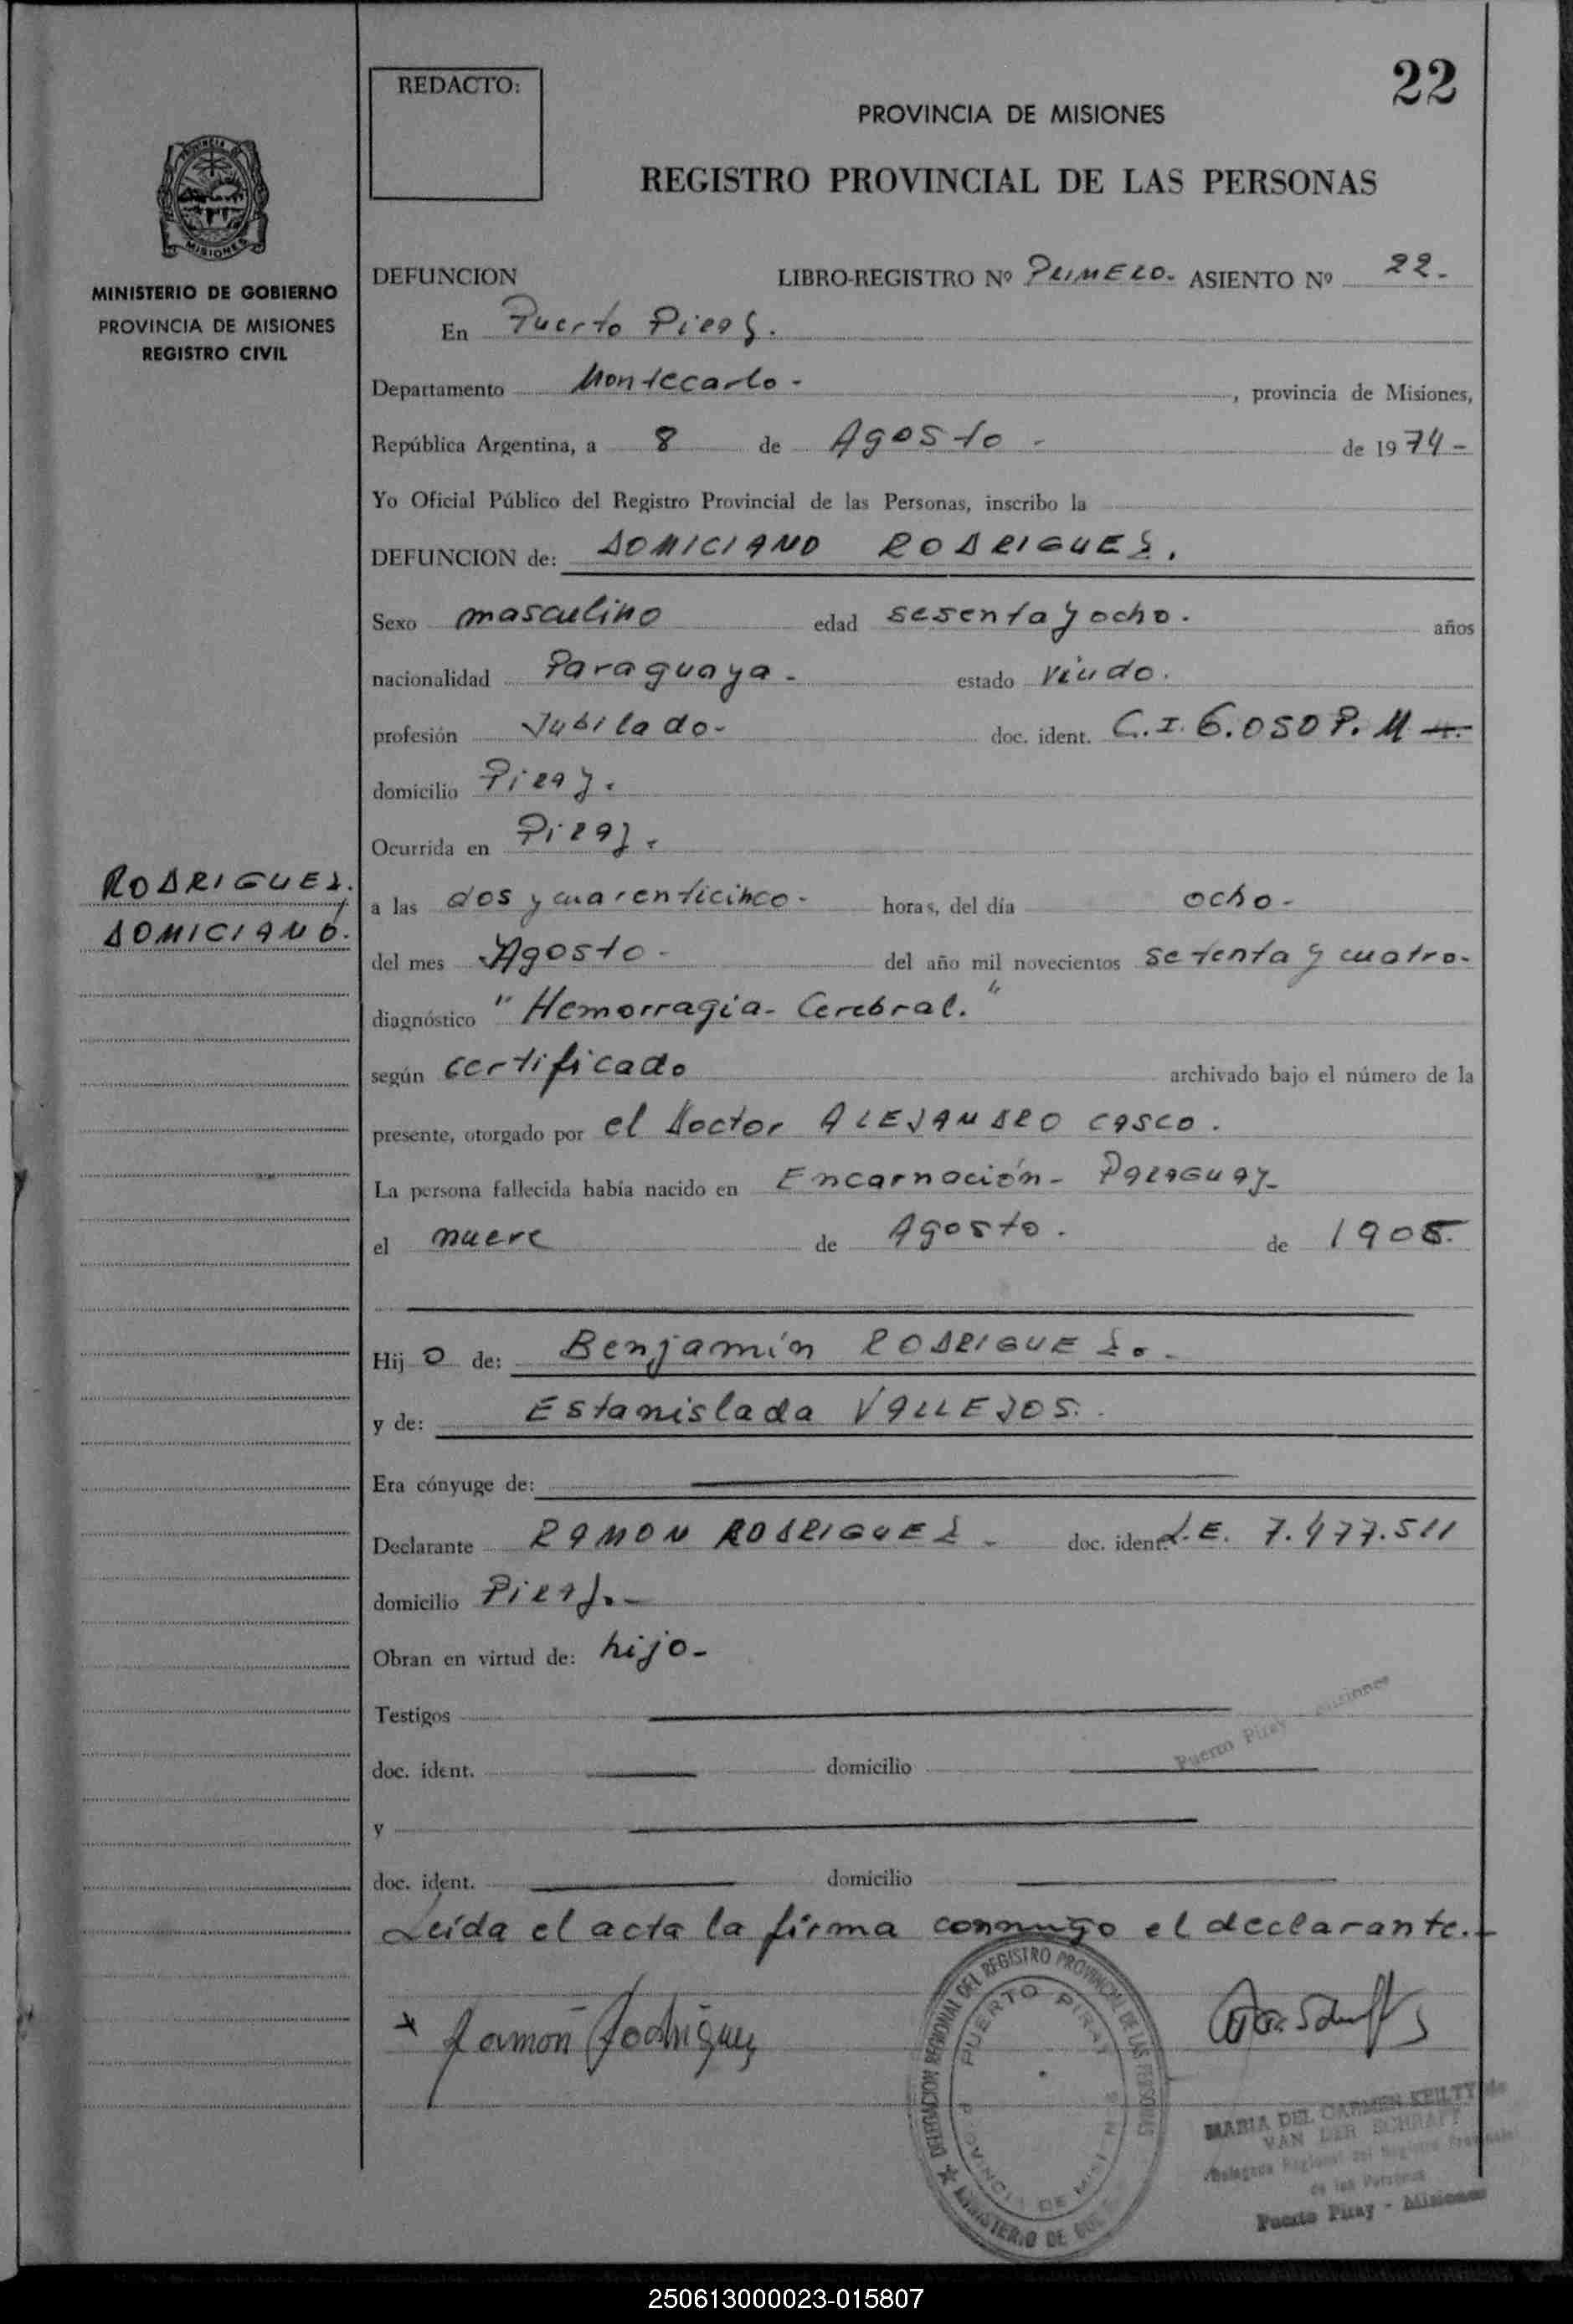 22
REDACTO:
PROVINCIA DE MISIONES
REGISTRO PROVINCIAL DE LAS PERSONAS
PROVINCIA DE
MISIONES
MINISTERIO DE GOBIERNO
PROVINCIA DE MISIONES
REGISTRO CIVIL
DEFUNCION LIBRO-REGISTRO Nº PRIMERO. ASIENTO Nº 22.-
En Puerto Piray.
Departamento Montecarlo - , provincia de Misiones,
República Argentina, a 8 de Agosto - de 1974-
Yo Oficial Público del Registro Provincial de las Personas, inscribo la
DEFUNCION de: DOMICIANO RODRIGUEZ.
Sexo masculino edad sesenta y ocho. años
nacionalidad Paraguaya - estado viudo.
profesión Jubilado- doc. ident. C.I. 6.050 P. M
domicilio Piray.
Ocurrida en Piray.
RODRIGUEZ.
DOMICIANO.
a las dos y cuarenticinco- horas, del día ocho-
del mes Agosto- del año mil novecientos setenta y cuatro-
diagnóstico "Hemorragia- Cerebral."
según certificado archivado bajo el número de la
presente, otorgado por el Doctor ALEJANDRO CASCO.
La persona fallecida había nacido en Encarnación- PARAGUAY-
el nueve de Agosto. de
Hijo de: Benjamín RODRIGUEZ.-
y de: Estanislada VALLEJOS.
Era cónyuge de:
Declarante RAMON RODRIGUEZ - doc. ident. L.E. 7.477.511
domicilio Piray.-
Obran en virtud de: hijo-
Testigos
Puerto Piray Misiones
doc. ident. domicilio
y
doc. ident. domicilio
Leída el acta la firma conmigo el declarante.-
Ramón Rodriguez
DELEGACION REGIONAL DEL REGISTRO PROVINCIAL DE LAS PERSONAS
PUERTO PIRAY
PROVINCIA DE MISIONES
MINISTERIO DE GOB
MARIA DEL CARMEN KEILTY de
VAN DER SCHRAFT
Delegada Regional del Registro Provincial
de las Personas
Puerto Piray - Misiones
250613000023-015807